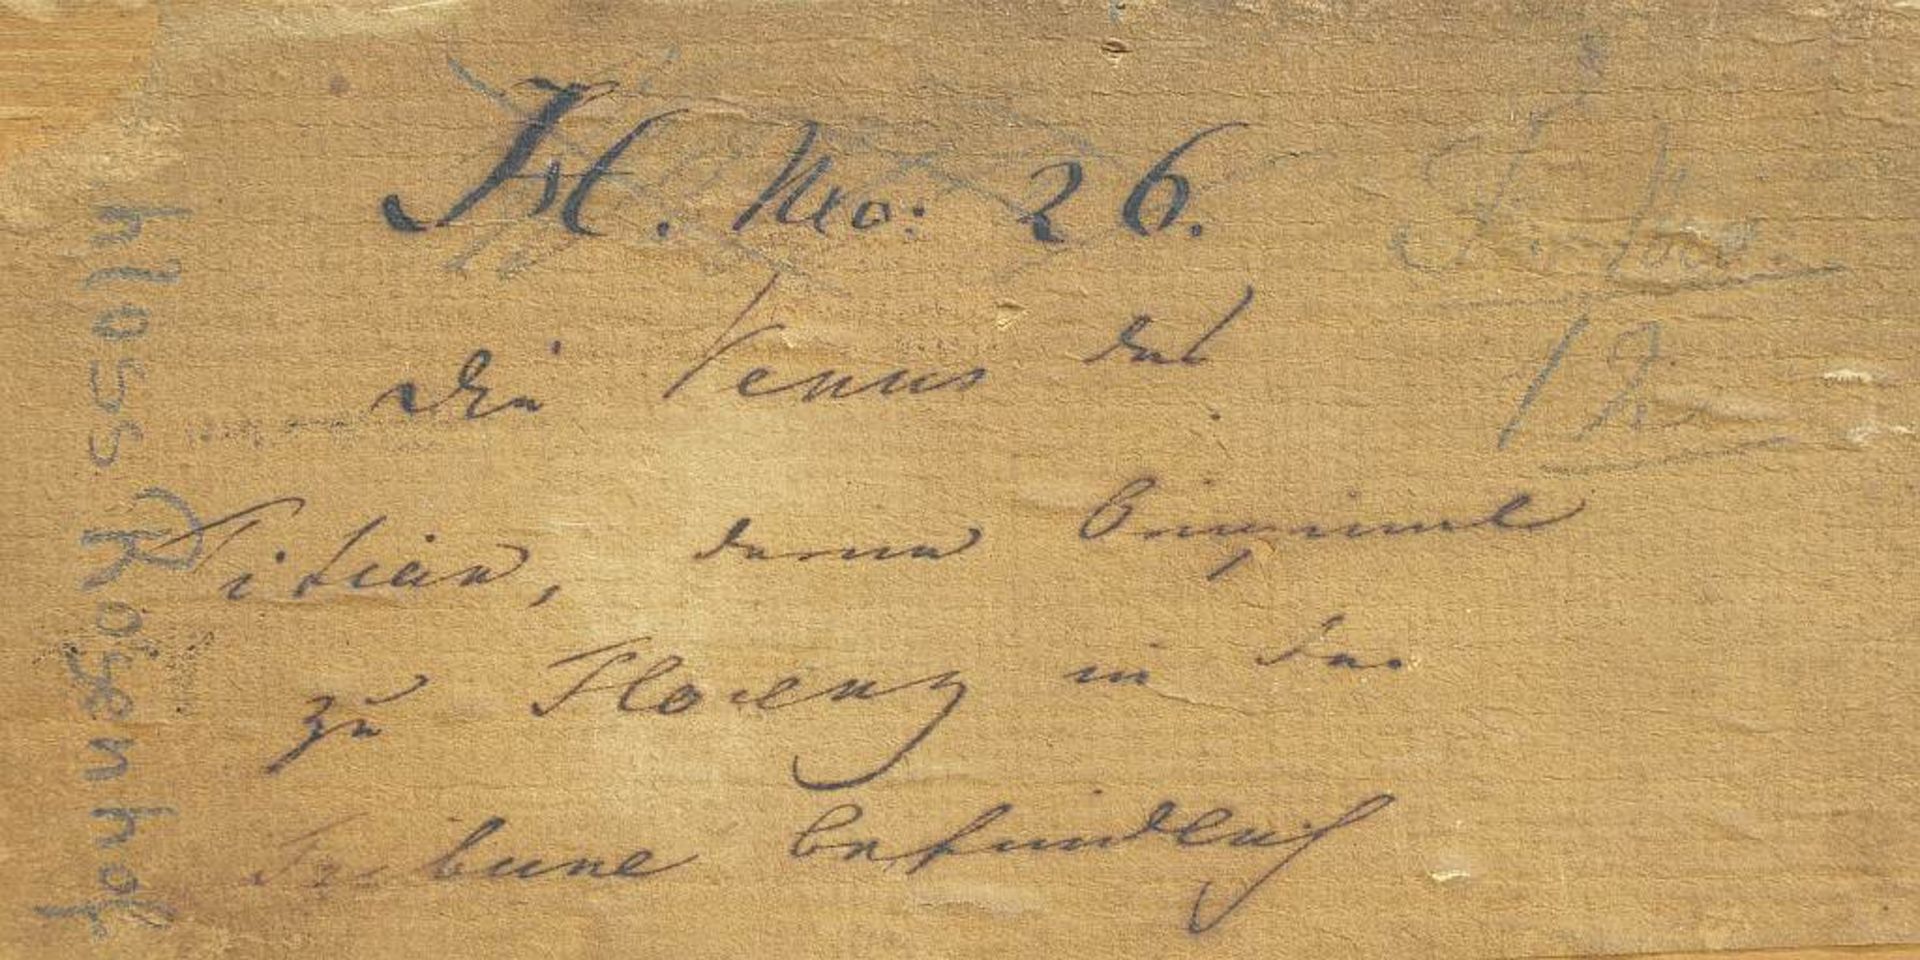 No: 26.
Die Venus des
Titian, deren Original
zu Florenz in der
Tribune befindlich
hloss Rogenhof